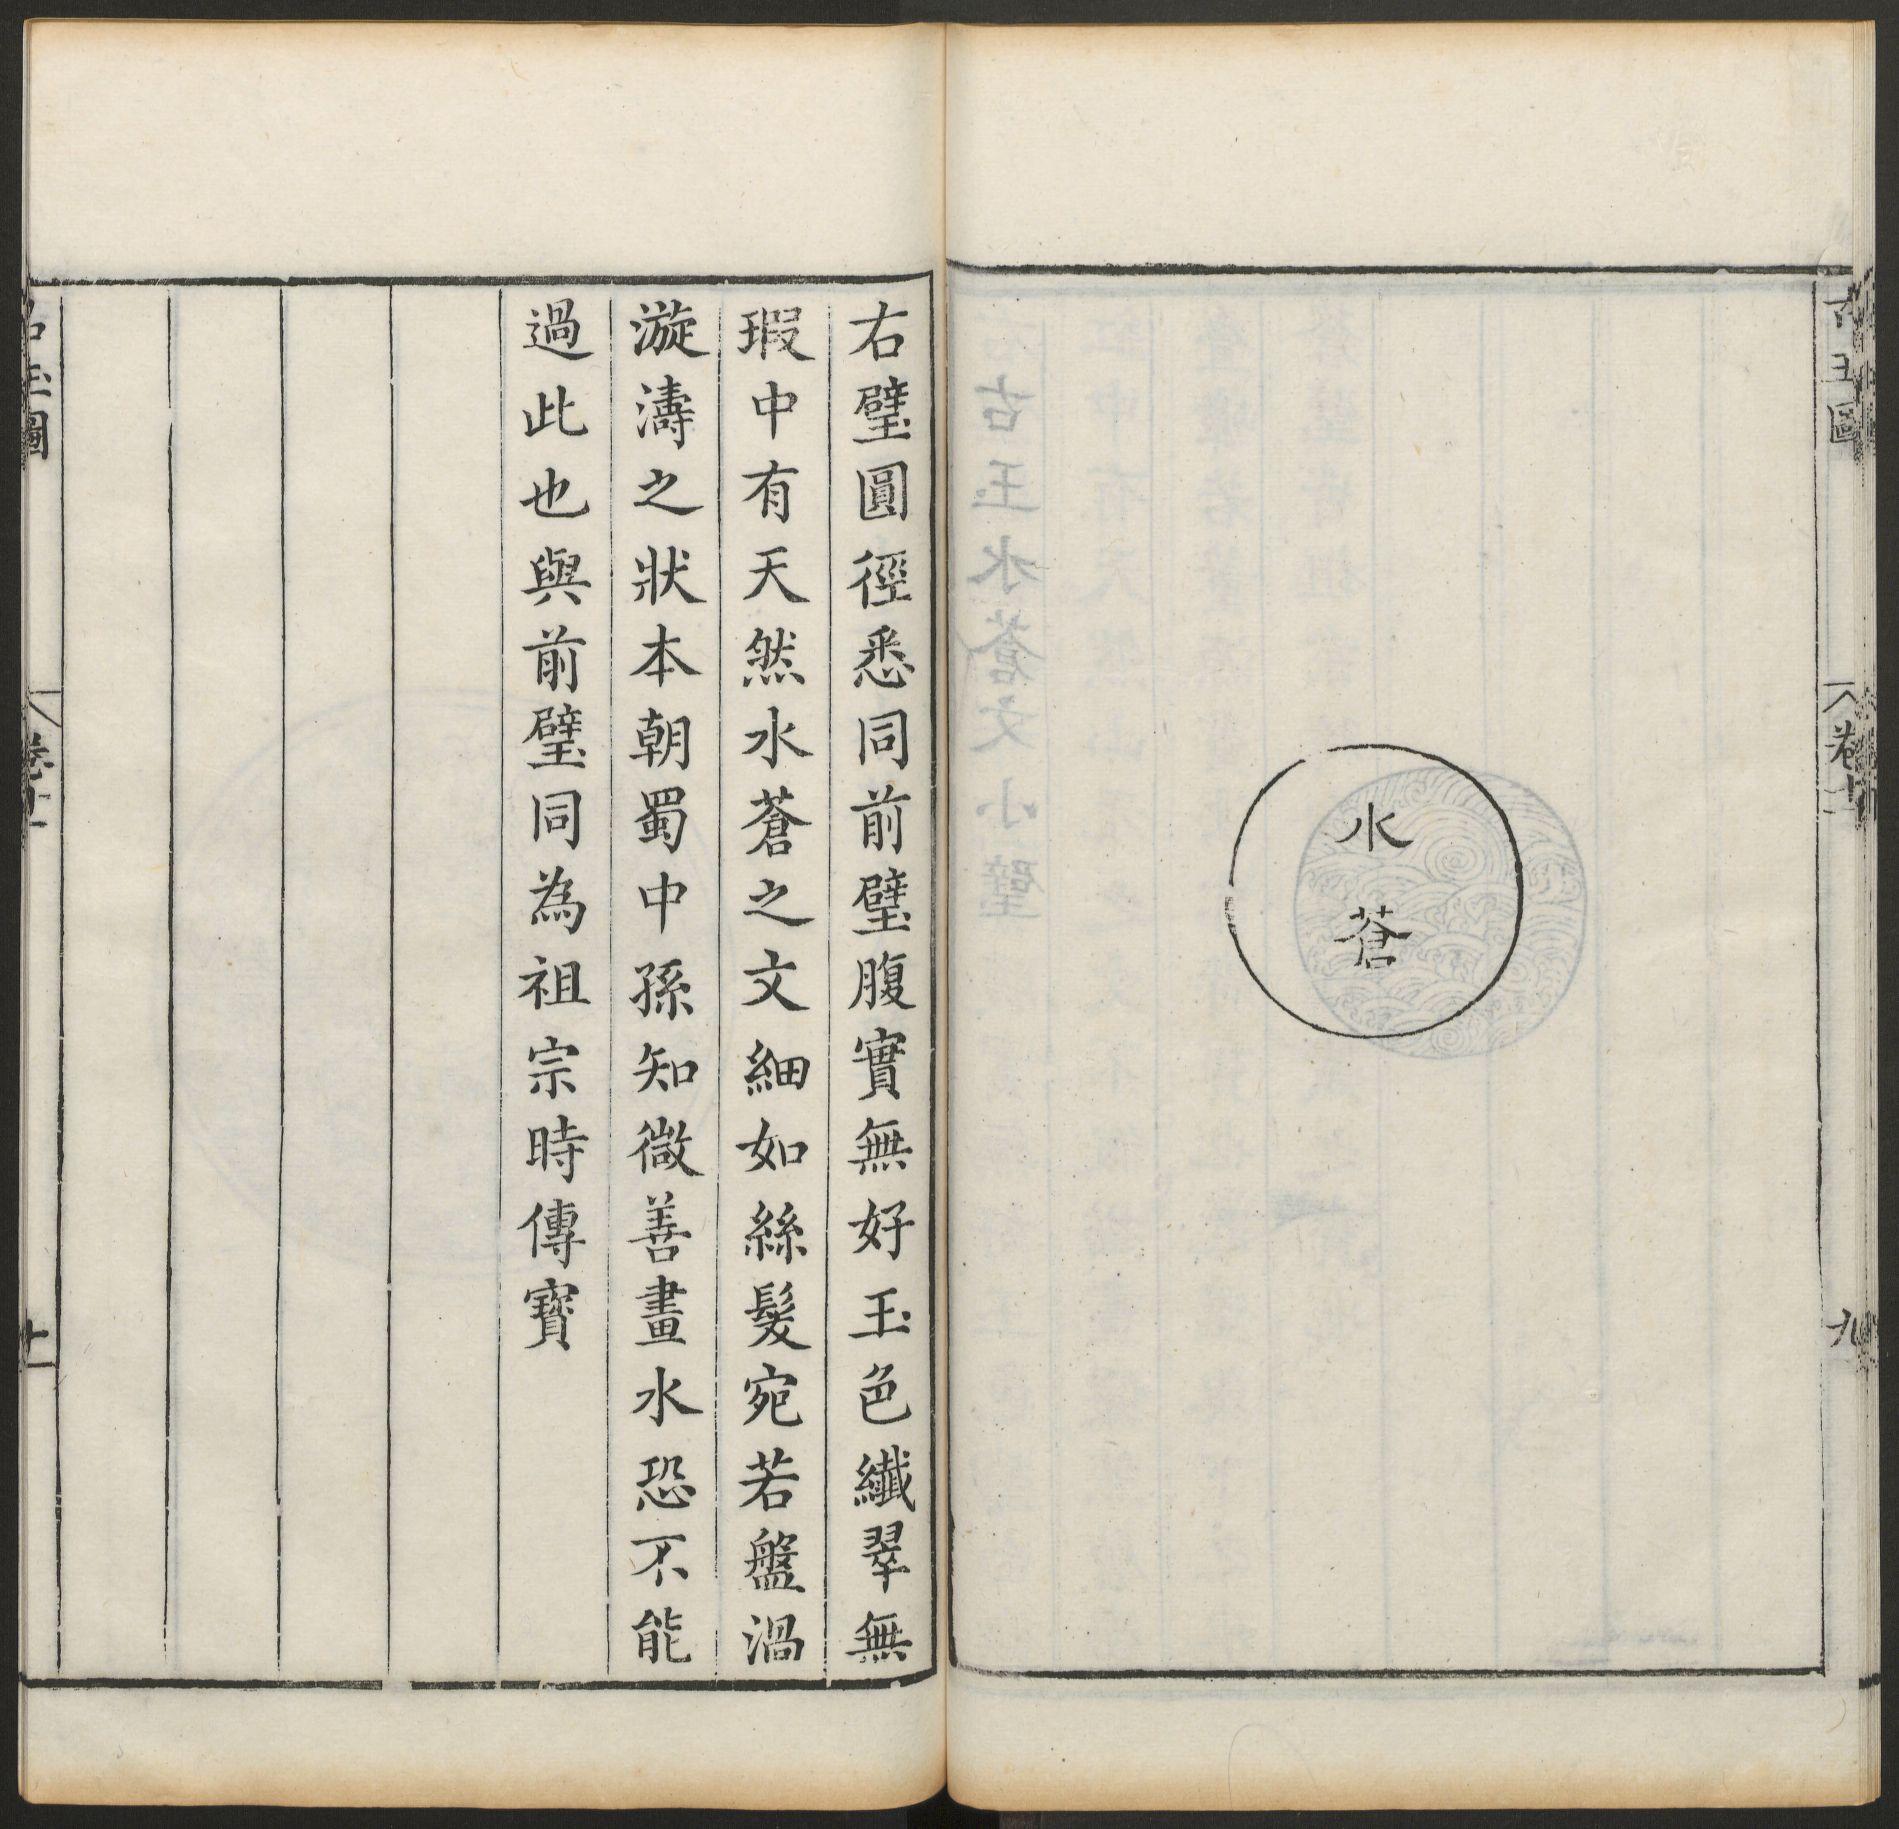 古玉圖
卷十
九
水
蒼
右璧圓徑悉同前璧腹實無好玉色纖翠無
瑕中有天然水蒼之文細如絲髮宛若盤渦
漩濤之狀本朝蜀中孫知微善畫水恐不能
過此也與前璧同為祖宗時傳寳
古玉圖
卷十
十